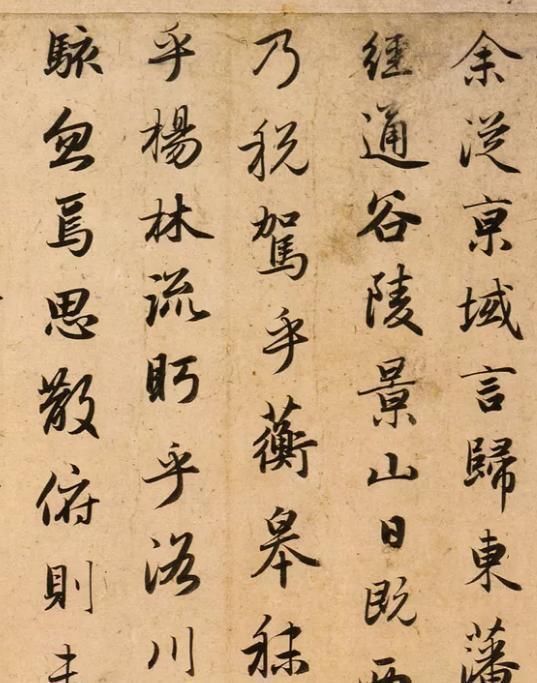 余從京域言歸東藩
經通谷陵景山日既西
乃稅駕乎蘅皋秣
乎楊林流眄乎洛川
駭忽焉思散俯則